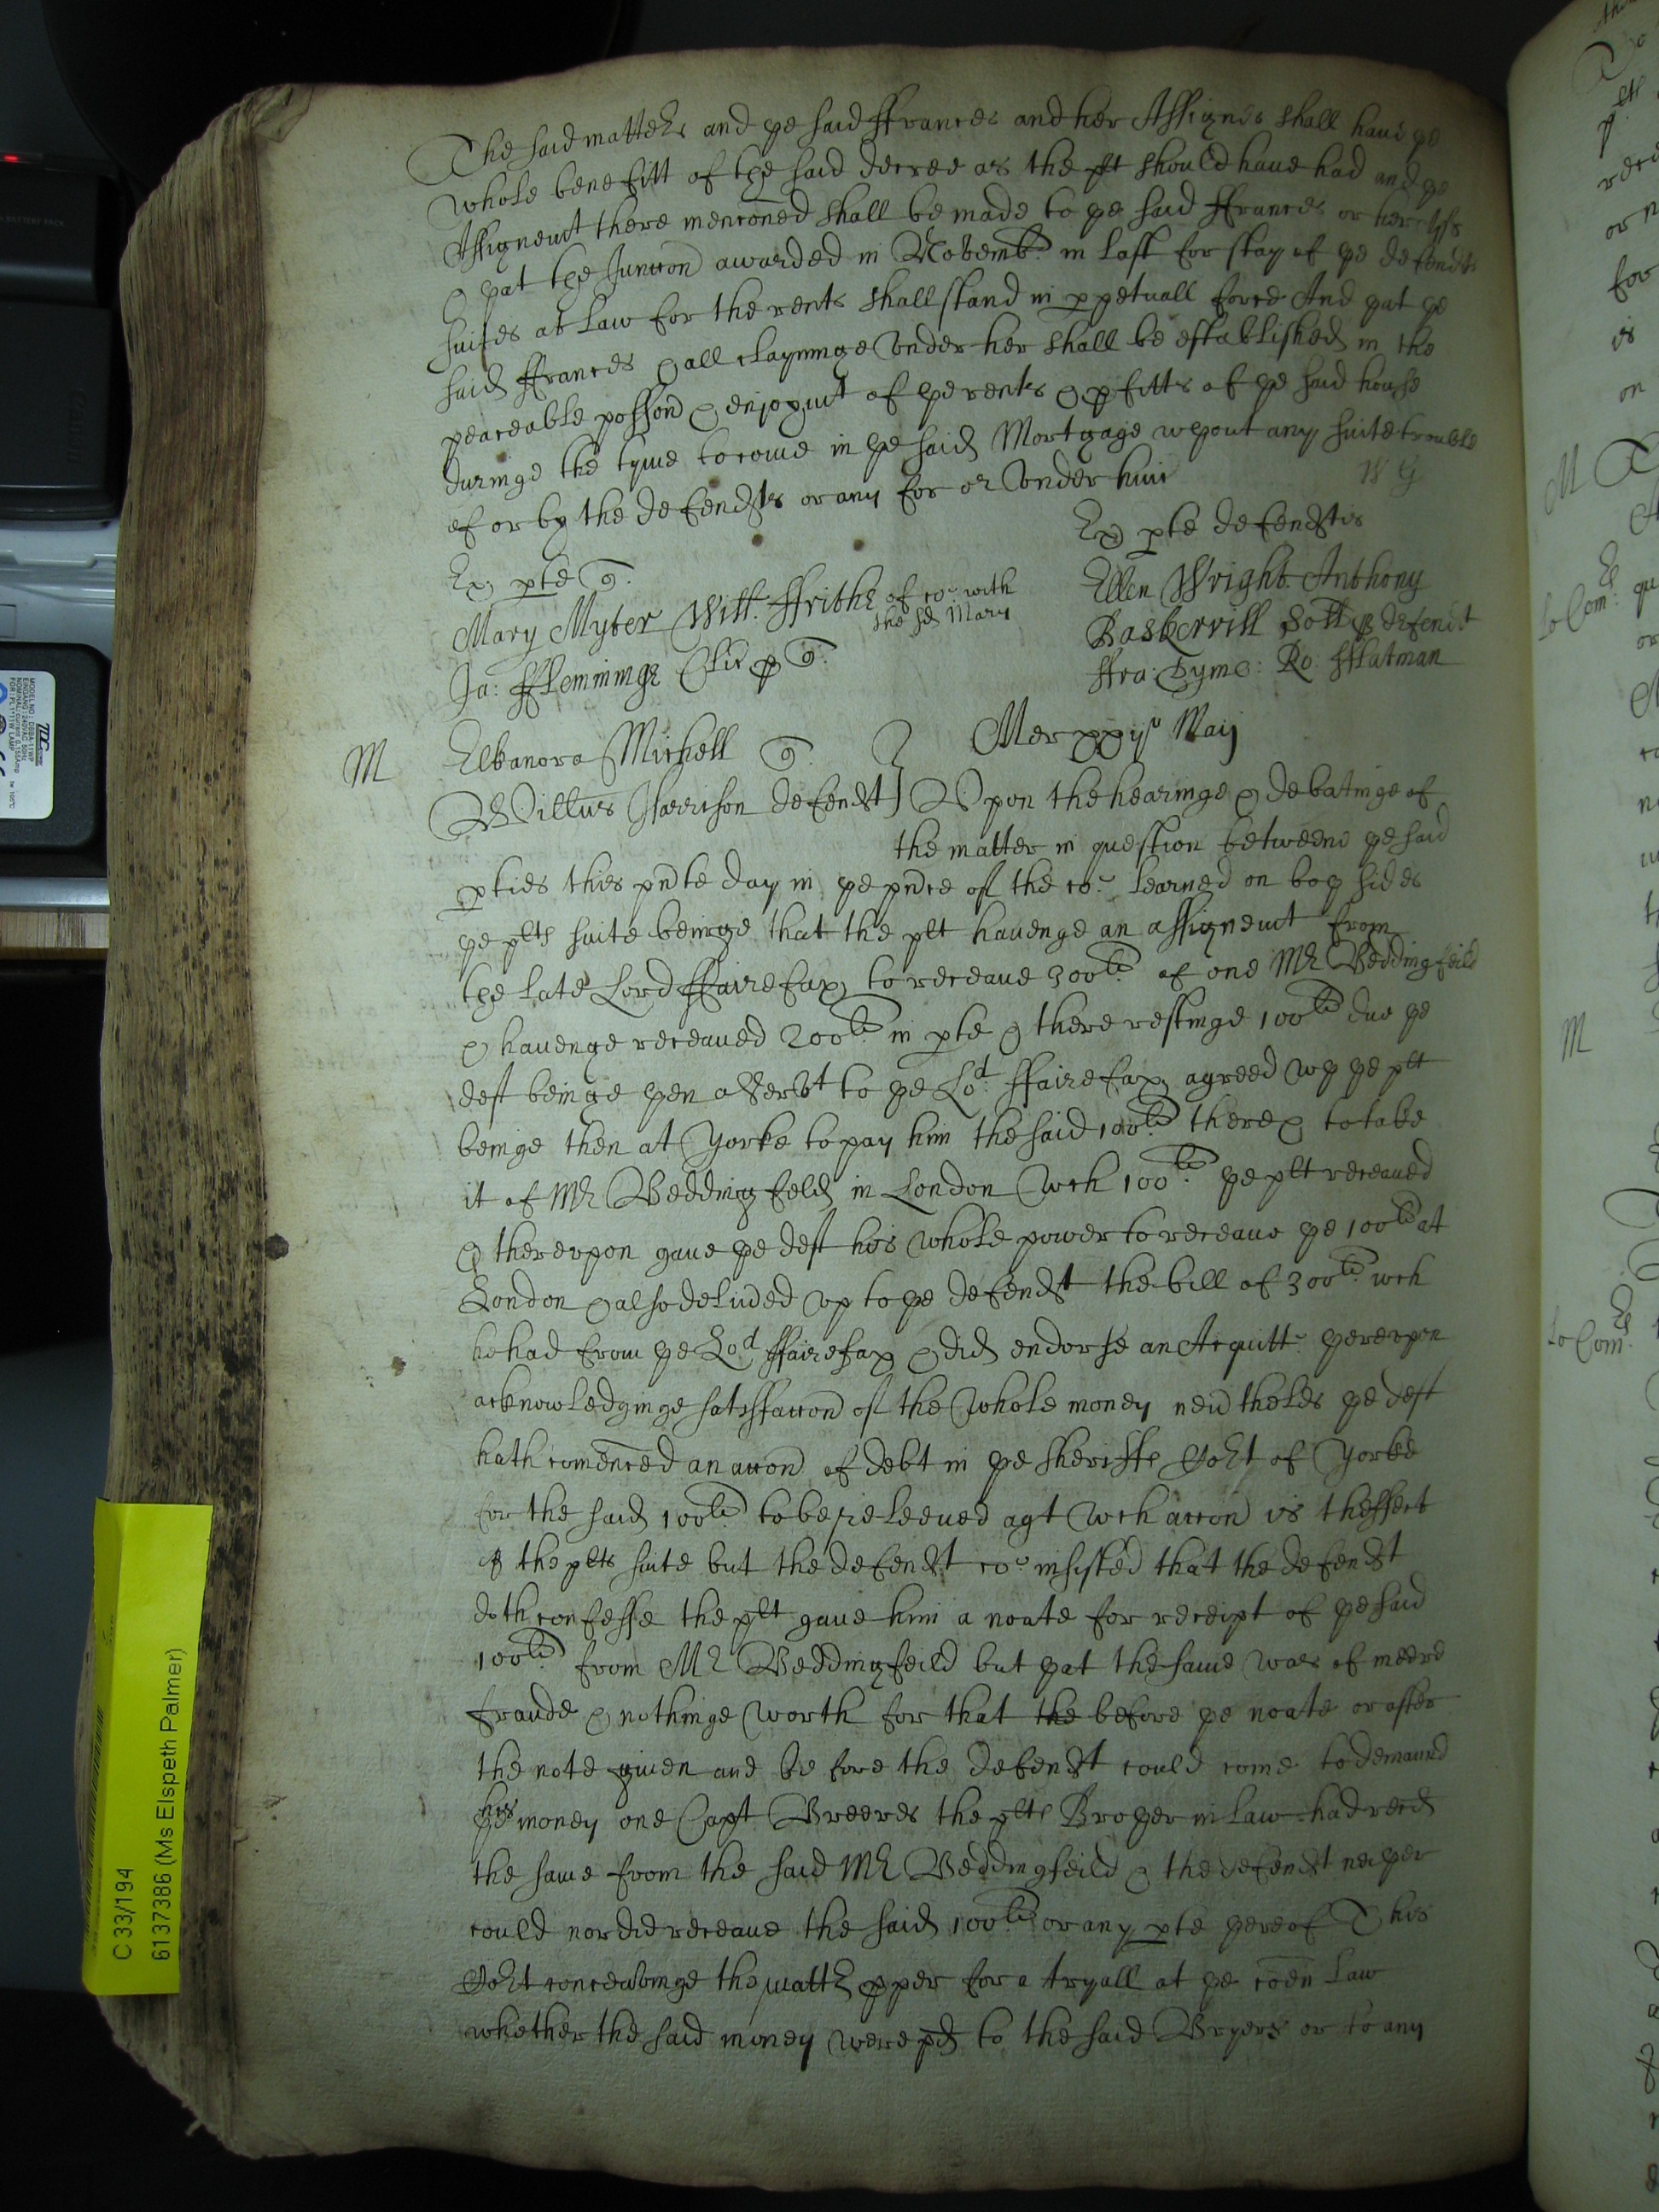 The said matters and ye said ffrances and her Assignes shall have ye
whole benefitt of the said decree as the plt should have had and ye
Assignemt there menconed shall be made to ye said ffrances or her Ass
& yat the Junccon awarded in Novemb: in last for stay of ye defendts
suites at Law for the rents shall stand in ppetuall force And yat ye
said ffrances & all clayminge under her shall be established in the
peaceable possion & enjoymt of ye rents & pfitts of ye said house
duringe the tyme to come in ye said Mortgage wthout any suite trouble
of or by the defendts or any for or under him
W G
Ex pte
Mary Myter Will: ffrithe of co: with
the sd Mary
Ja: fflemminge
Ex pte defendtis
Ellen Wright Anthony
Baskervill defendt
ffra: Tyms: Ro: fflatman
M
Elbanora Michell
Willus Harrison defendt
Mer xxijo Maij
Upon the hearinge & debatinge of
the matter in question betweene ye said
pties this pnte day in ye pnce of the co: learned on both sides
ye plts suite beinge that the plt havenge an assignemt from
the late Lord ffairefax to receave 300li of one Mr Beddingfeild
& havenge receaved 200li in pte & there restinge 100li due ye
deft beinge then a servt to ye Lo:d ffairefax agreed wth ye plt
beinge then at Yorke to pay him the said 100li there & to take
it of Mr Beddingfeld in London wch 100li ye plt receaved
& thereupon gave ye deft his whole power to receave ye 100li at
London & also delived up to ye defendt the bill of 300li wch
he had from ye Lod ffairefax & did endorse an Acquitt: thereupon
acknowledginge satisfaccon of the whole money nevtheles ye deft
hath comenced an accon of debt in ye sheriffs Cort of Yorke
for the said 100li to be releeved agt wch accon is theffect
of the plts suite but the defendt co: insisted that the defendt
doth confesse the plt gave him a noate for receipt of ye said
100li from Mr Beddingfeild but yat the same was of meere
fraude & nothinge worth for that the before ye noate or after
the note given and before the defendt could come to demaund
his money one Capt Breeres the plts Brother in Law had recd
the same from the said Mr Beddingfeild & the defendt neither
could nor did receave the said 100li or any pte thereof This
Cort conceavinge the mattr pper for a tryall at ye coen Law
whether the said money were pd to the said Bryers or to any
C 33/194
6137386 (Ms Elspeth Palmer)